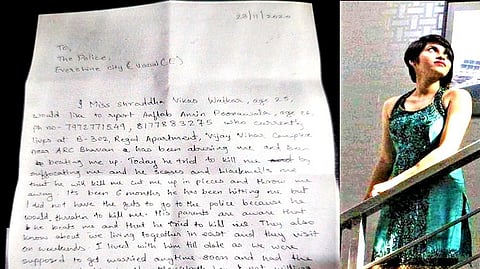 23/11/2020
To,
The Police,
Evershine city (Vasai (E)
I Miss Shraddha Vikas Walkar, age 25,
would like to report Aaftab Amin Poonawala, age 26,
who currently
lives at B-302, Regal Apartment, Vijay Vihar Complex
near ARC Bhavan has been abusing me and
beating me up. Today he tried to kill me by
suffocating me and he scares and blackmails me
that he will kill me, cut me up in pieces and throw me
away. Its been 6 months he has been hitting me but
I did not have the guts to go to the police because he
would threaten to kill me. His parents are aware that
he beats me and that he tried to kill me. They also
know about we living together in and they visit
on weekends. I lived with him till date as we were
supposed to get married anytime soon and had the